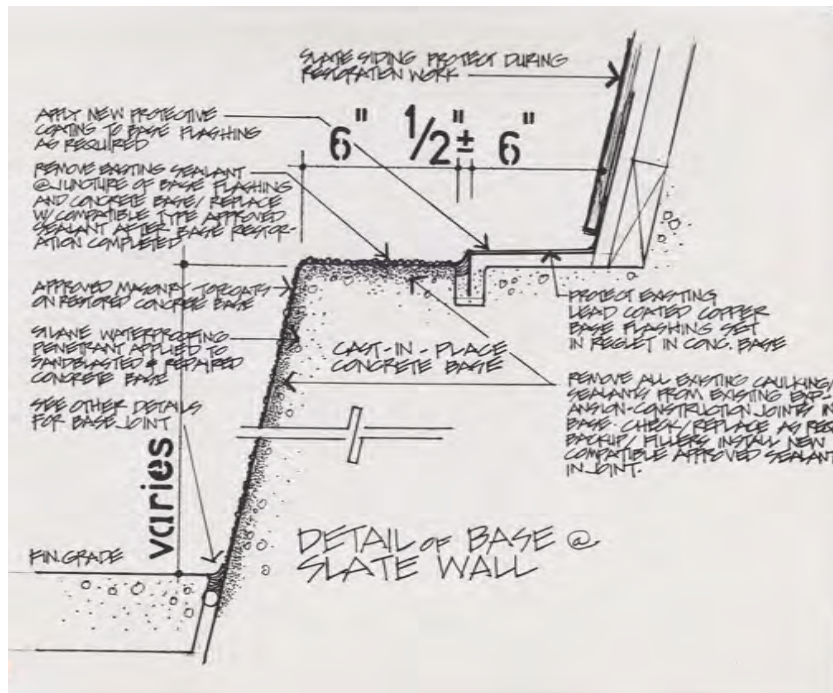 SLATE SIDING PROTECT DURING
RESTORATION WORK
APPLY NEW PROTECTIVE
COATING TO BASE FLASHING
AS REQUIRED
6" 1/2"± 6"
REMOVE EXISTING SEALANT
@ JUNCTURE OF BASE FLASHING
AND CONCRETE BASE/ REPLACE
W/COMPATIBLE TYPE APPROVED
SEALANT AFTER BASE RESTOR-
ATION COMPLETED
APPROVED MASONRY TOPCOATS
ON RESTORED CONCRETE BASE
SILANE WATERPROOFING
PENETRANT APPLIED TO
SANDBLASTED & REPAIRED
CONCRETE BASE
SEE OTHER DETAILS
FOR BASE JOINT
varies
FIN. GRADE
CAST-IN-PLACE
CONCRETE BASE
PROTECT EXISTING
LEAD COATED COPPER
BASE FLASHING SET
IN REGLET IN CONC. BASE
REMOVE ALL EXISTING CAULKING/
SEALANTS FROM EXISTING EXP-
ANSION-CONSTRUCTION JOINTS IN
BASE. CHECK/REPLACE AS REQ
BACKUP/ FILLERS INSTALL NEW
COMPATIBLE APPROVED SEALANT
IN JOINT.
DETAIL OF BASE @
SLATE WALL